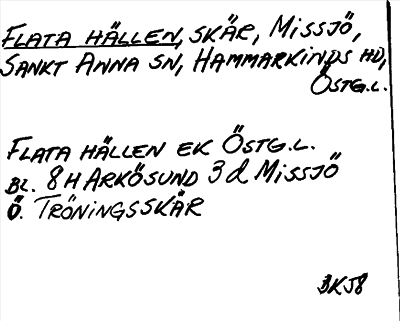 FLATA HÄLLEN, SKÄR, MISSJÖ,
SANKT ANNA SN, HAMMARKINDS HD,
ÖSTG.L.
FLATA HÄLLEN EK ÖSTG.L.
BL. 8H ARKÖSUND 3d MISSJÖ
Ö. TRÖNINGSSKÄR
3KJ8